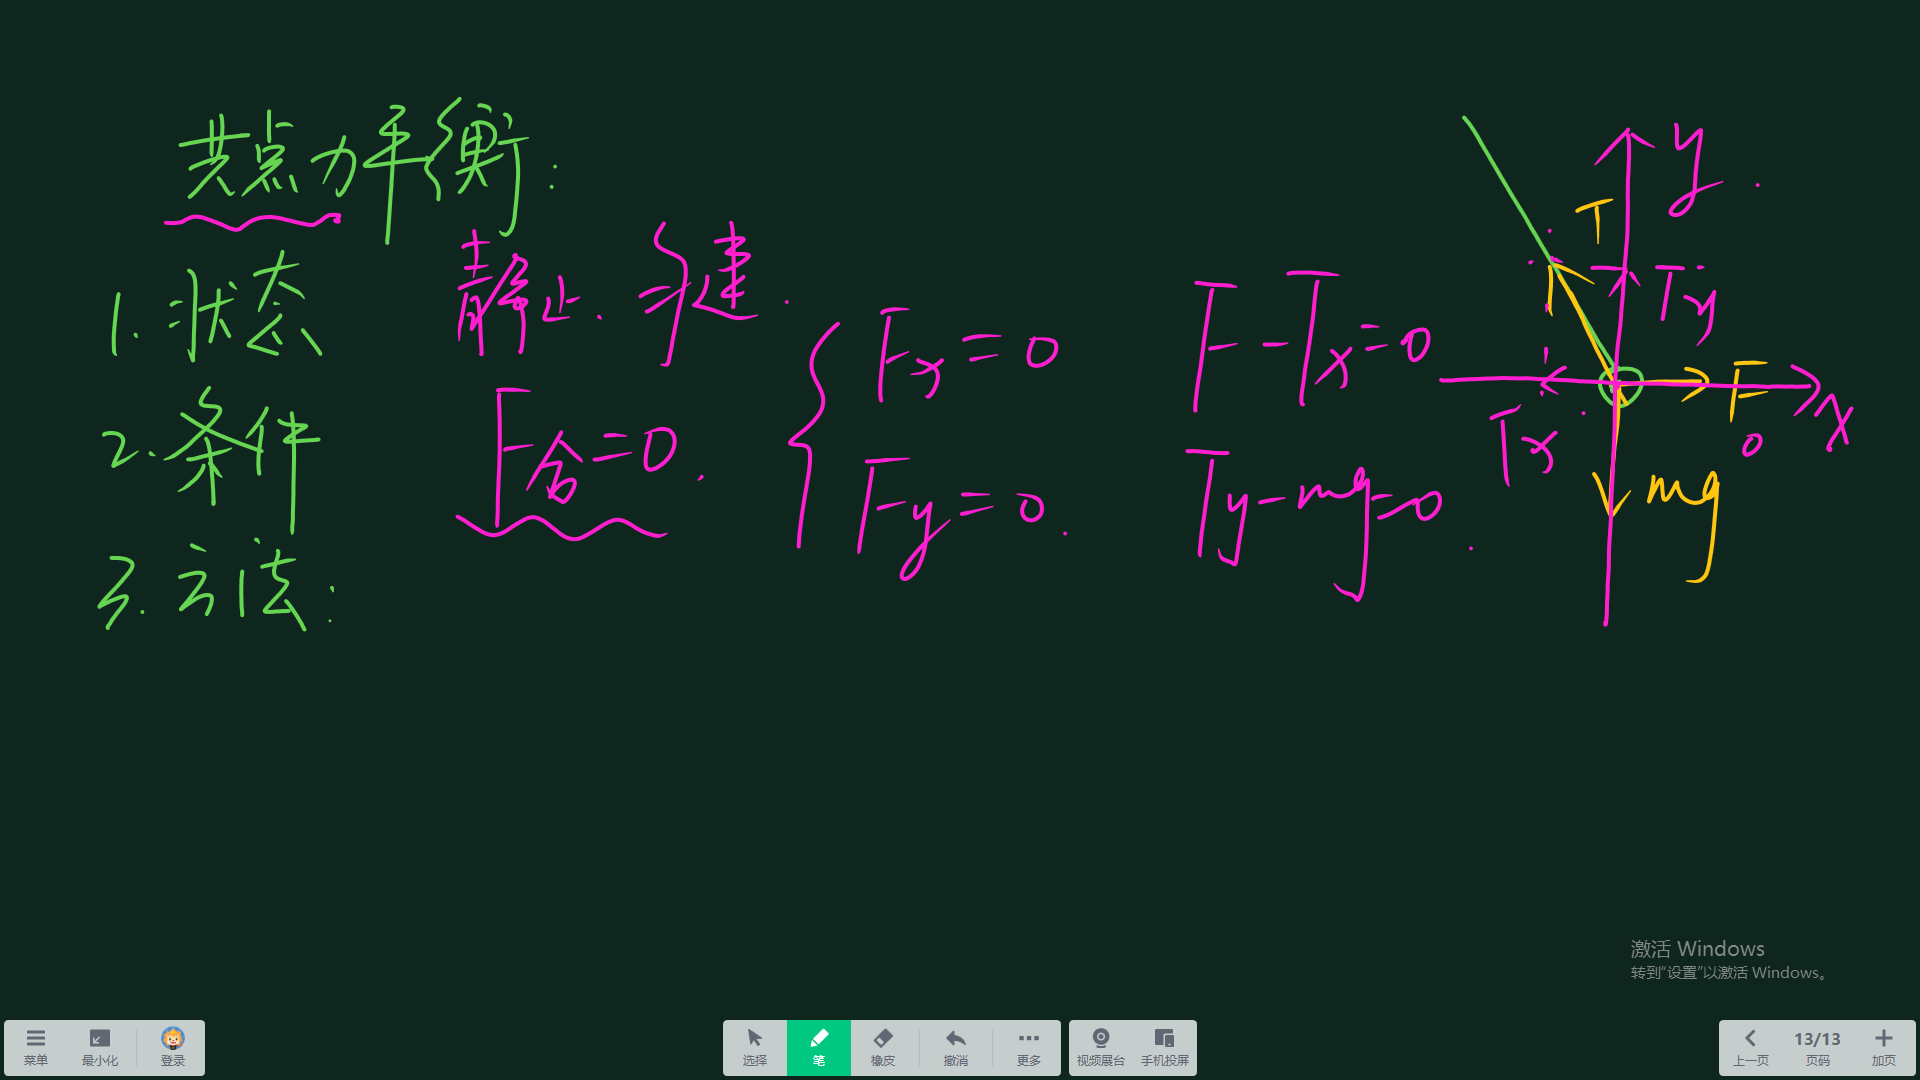 共点力平衡:
1. 状态 静止. 匀速.
2. 条件 F合=0.
Fx=0
Fy=0.
F-Tx=0
Ty-mg=0.
3. 方法:
y
T
Ty
F
x
Tx
0
mg
激活 Windows
转到“设置”以激活 Windows。
菜单 最小化 登录 选择 笔 橡皮 撤消 更多 视频展台 手机投屏 上一页 13/13 页码 加页